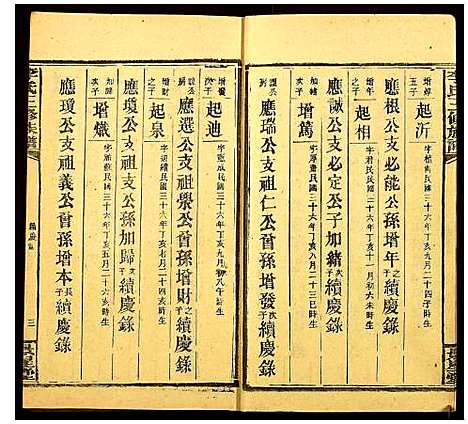 李氏三修族譜
五子 起沂 字 南民國三十六年丁亥九月二十四子時生
應根公支必能公孫增年之子續慶錄
增年之子 起相 字君民民國三十六年丁亥十一月初六未時生
應誠公支必定公子加緒次子續慶錄
加緒次子 增篤 字厚 民國三十六年丁亥八月二十三巳時生
應瑞公支祖仁公曾孫增發次子續慶錄
增發次子 起迪 字 成民國三十六年丁亥九月初八午時生
應選公支祖學公曾孫增財之子續慶錄
增財之子 起泉 字 禮民國三十六年丁亥七月二十四亥時生
應瓊公支祖 公孫加歸次子續慶錄
加歸次子 增熾 字 民國三十六年丁亥五月二十六亥時生
應瓊公支祖義公曾孫增本長子續慶錄
李氏三修族譜
三